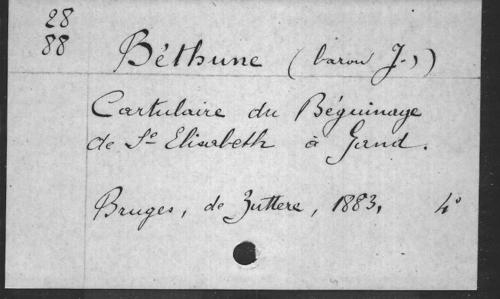 28
88
Béthune (baron J.)
Cartulaire du Béguinage
de Ste Elisabeth à Gand.
Bruges, de Zuttere, 1883, 4°